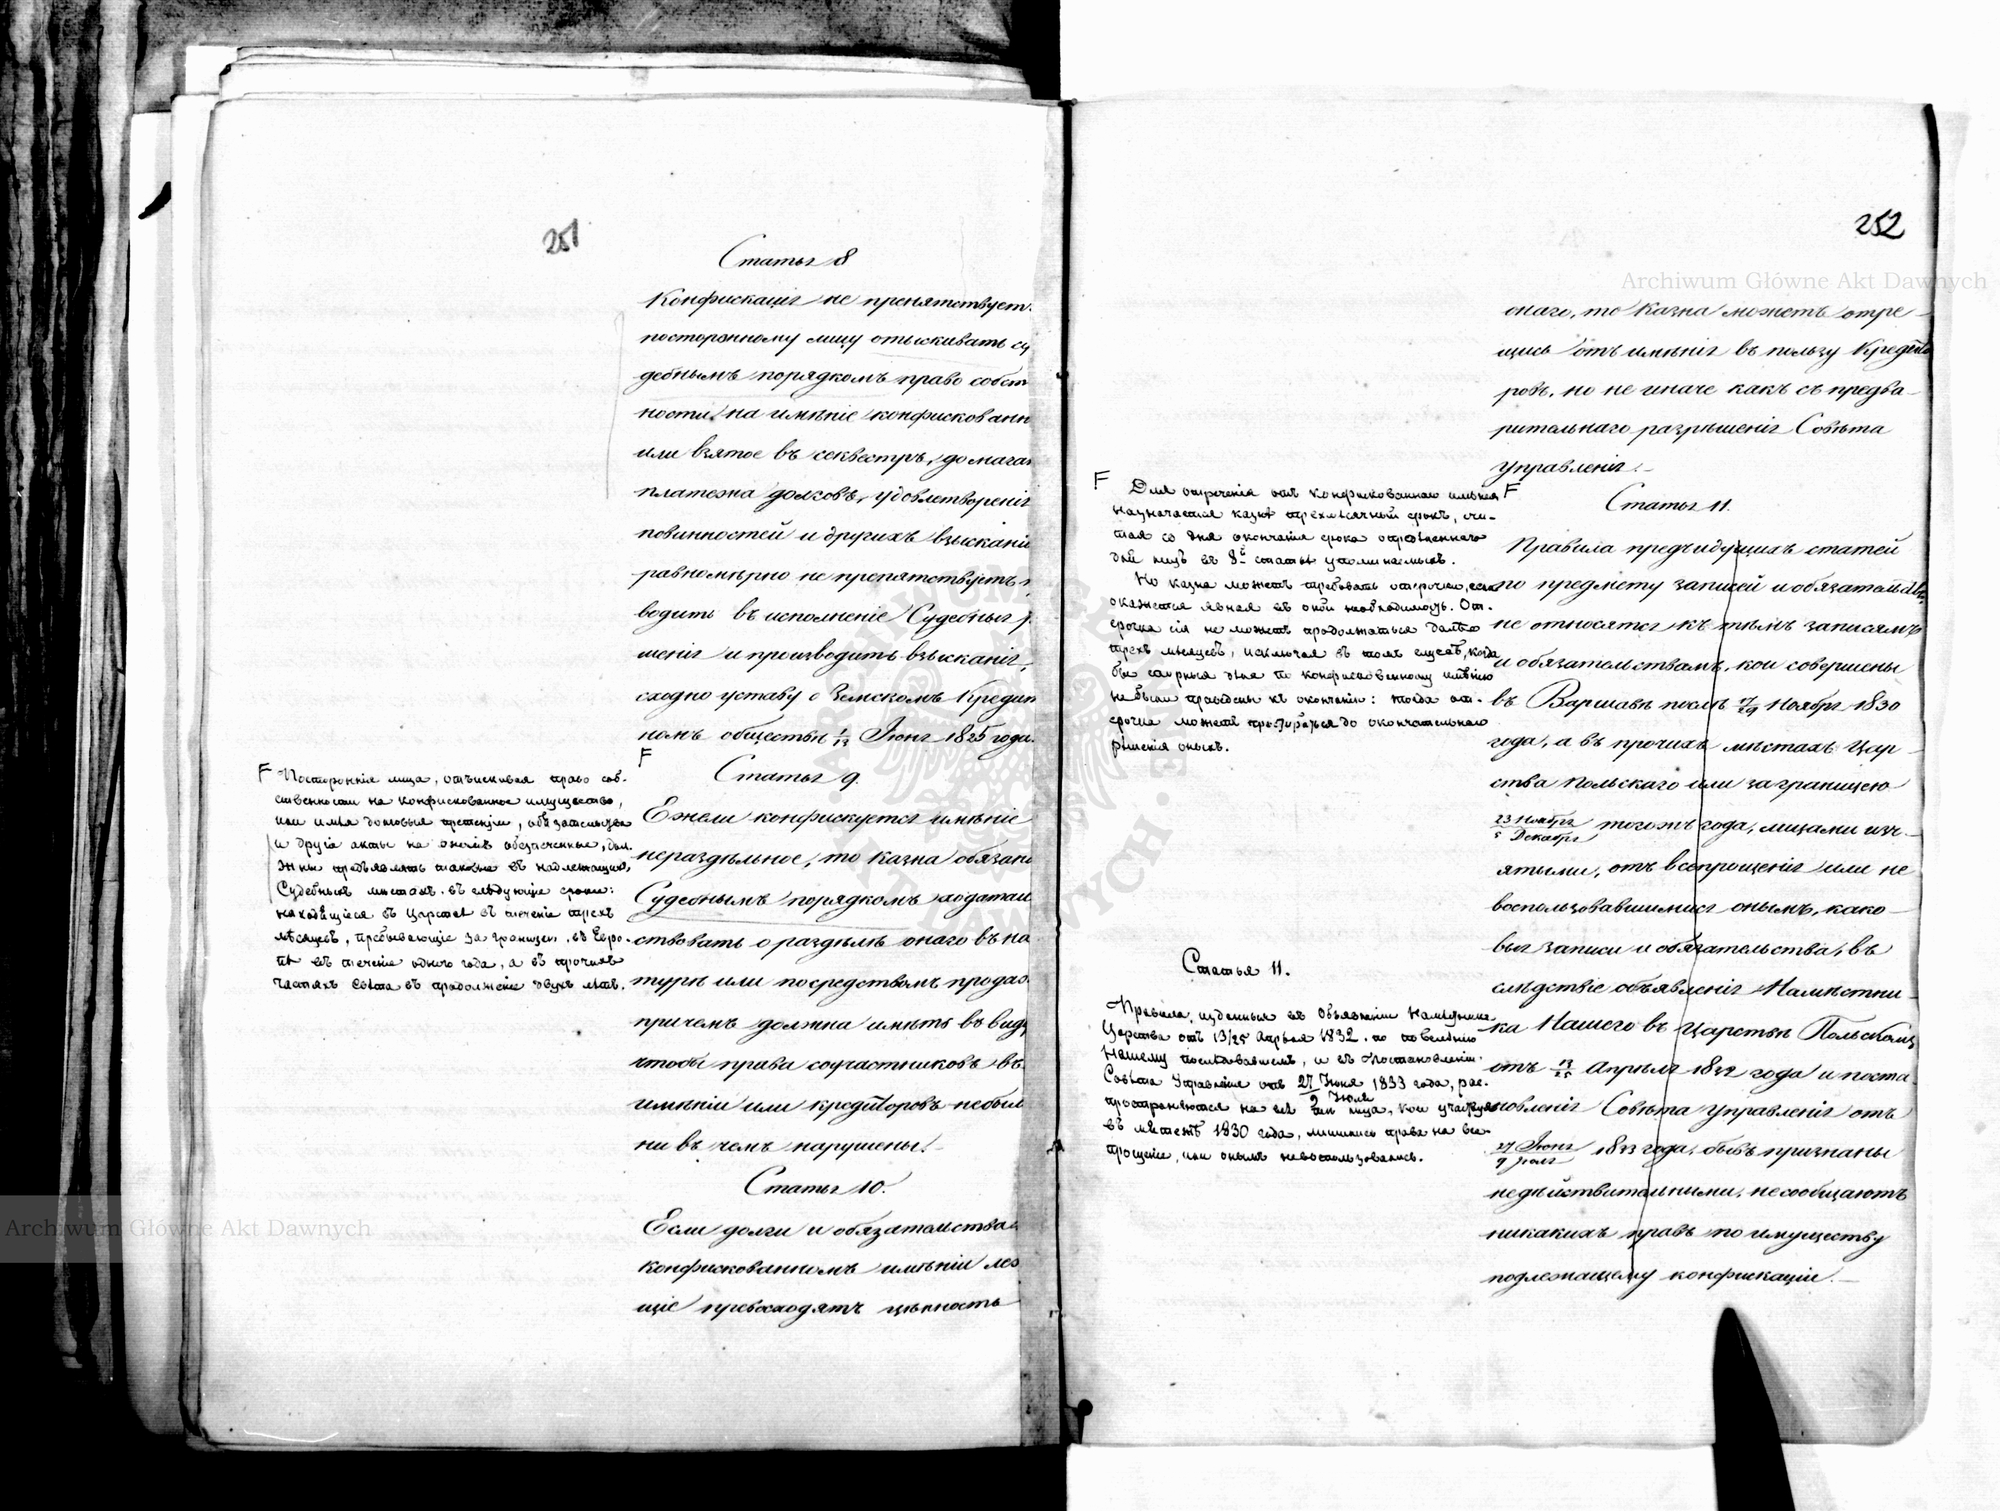 251
Статья 8
Конфискація не препятствует
постороннему лицу отыскивать су
дебнымъ порядкомъ право собст
ности на имѣніе конфискованн
или взятое въ секвестръ, домагат
платежа долговъ, удовлетворенія
повинностей и другихъ взысканій
равномѣрно не препятствуетъ п
водить въ исполненіе Судебныя р
шенія и производить взысканія,
сходно уставу о Земскомъ Кредит
номъ обществѣ 1/13 Іюня 1825 года.
F
F Постороннія лица, отыскивая право соб-
ственности на конфискованное имущество,
или имѣя долговыя претензіи, обязательства
и другіе акты на ономъ обезпеченные, дол-
жны предъявлять таковые въ надлежащихъ
Судебныхъ мѣстахъ въ слѣдующіе сроки:
находящіеся въ Царствѣ въ теченіе трехъ
мѣсяцевъ, пребывающіе за границею, въ Евро-
пѣ въ теченіе одного года, а въ прочихъ
частяхъ Свѣта въ продолженіе двухъ лѣтъ.
Статья 9.
Ежели конфискуется имѣніе
нераздѣльное, то казна обязана
Судебнымъ порядкомъ ходатай
ствовать о раздѣлѣ онаго въ на
турѣ или посредствомъ продаж
причемъ должна имѣть въ виду
чтобы права соучастниковъ въ
имѣніи или кредиторовъ небыли
ни въ чемъ нарушены.
Статья 10.
Если долги и обязательства
конфискованномъ имѣніи леж
щіе превосходятъ цѣнность
252
онаго, то Казна можетъ отре-
щись отъ имѣнія въ пользу Кредито
ровъ, но не иначе какъ съ предва-
рительнаго разрѣшенія Совѣта
управленія.
F
F
Для отреченія отъ конфискованнаго имѣнія
назначается казнѣ трехмѣсячный срокъ, счи-
тая со дня окончанія срока опредѣленнаго
для лицъ въ 8й статьѣ упоминаемыхъ.
Но казна можетъ требовать отсрочки, если
окажется явная въ оной необходимость. От-
срочка сія не можетъ продолжаться далѣе
трехъ мѣсяцевъ, исключая въ томъ случаѣ, когда
бы спорныя дѣла по конфискованному имѣнію
не были приведены къ окончанію: тогда от-
срочка можетъ простираться до окончательнаго
рѣшенія оныхъ.
Статья 11.
Правила предъидущихъ статей
по предмету записей и обязательствъ,
не относятся къ тѣмъ записямъ
и обязательствамъ, кои совершены
въ Варшавѣ послѣ 17/29 Ноября 1830
года, а въ прочихъ мѣстахъ Цар-
ства Польскаго или за границею
23 Ноября/5 Декабря тогожъ года, лицами изъ-
ятыми, отъ всепрощенія или не
воспользовавшимися онымъ, како-
выя записи и обязательства, въ
слѣдствіе объявленія Намѣстни-
ка Нашего въ Царствѣ Польскомъ
отъ 13/25 Апрѣля 1832 года и поста-
новленія Совѣта управленія отъ
27 Іюня/9 Іюля 1833 года, бывъ признаны
недѣйствительными, несообщаютъ
никакихъ правъ по имуществу
подлежащему конфискаціи.
Статья 11.
Правила, изданныя въ Объявленіи Намѣстника
Царства отъ 13/25 Апрѣля 1832 по повелѣнію
Нашему послѣдовавшемъ, и въ Постановленіи
Совѣта Управленія отъ 27 Іюня/9 Іюля 1833 года, рас-
пространяются на всѣ тѣ лица, кои участвуя
въ мятежѣ 1830 года, лишились права на все-
прощеніе, или онымъ невоспользовались.
Archiwum Główne Akt Dawnych
Archiwum Główne Akt Dawnych